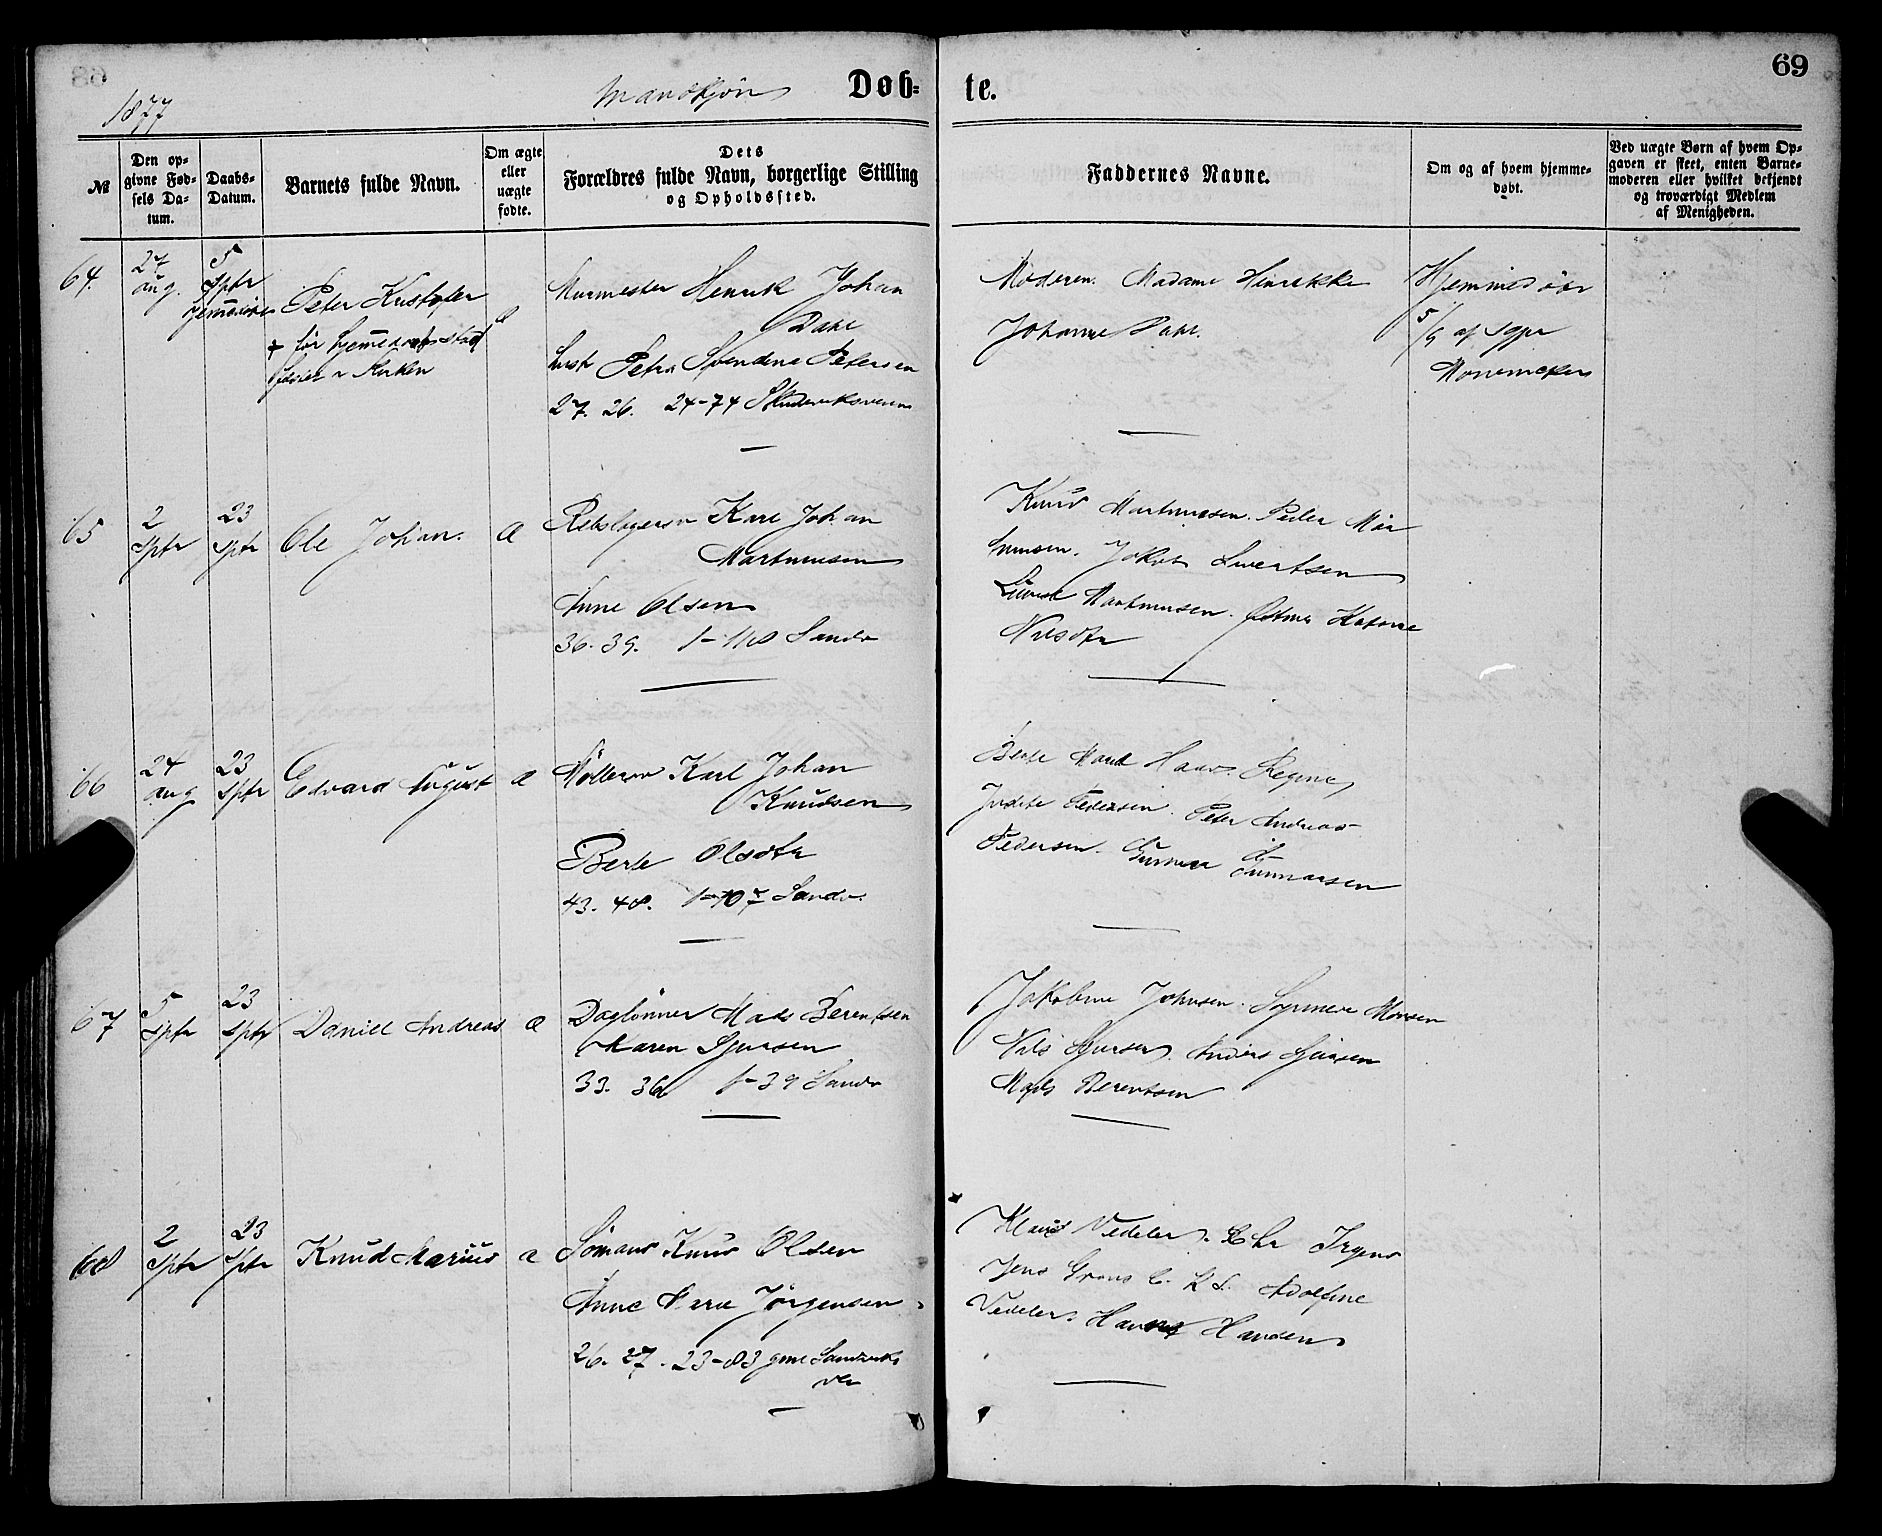 68
69
1877
Mandkjøn
Døb=
te.
№
Den op-
givne Fød-
sels Da-
tum.
Daabs-
Datum.
Barnets fulde Navn.
Om ægte
eller
uægte
fødte.
Dets
Forældres fulde Navn, borgerlige Stilling
og Opholdssted.
Faddernes Navne.
Om og af hvem hjemme-
døbt.
Ved uægte Børn af hvem Op-
gaven er skeet, enten Barne-
moderen eller hvilket bekjendt
og troværdigt Medlem
af Menigheden.
64.
27
aug.
5
Sptr
Peter Kristofer
+ før hjemmedaaben stadf
i Kirken
Murmester Henrik Johan
Dahl
Petra Svendine Petersen
27. 26. 24-74
Moderen. Madame Henrikke
Johanne Dahl.
Hjemmedøbt
5/9 af Jgfr
Monemaker
65
2
Sptr
23
Sptr
Ole Johan.
a
Rebslagersv Karl Johan
Martinusen
Anne Olsen
36. 39. Sandv
Knud Martinusen. Peder Mar
tinusen. Jakob Sivertsen
Martinusen.
Nilsdtr
66
24
aug
23
Sptr
Edvard August
a
Møllersv Karl Johan
Knudsen
Berte Olsdtr
43. 48. 1-107 Sandv.
Berte Marie Haav. Regine
Judite Pedersen. Peter Andreas
Pedersen. Gunnar Gunnarsen
67
5
Sptr
23
Sptr
Daniel Andreas
a
Daglønner Mads Berentsen
Maren Sjursen
33. 36 1-39 Sandv
Jakobine Johnsen. Synneve Monsen
Nils Sjursen. Anders Sjursen
Mads Berentsen
68
2
Sptr
23
Sptr
Knud Marius
a
Sømand Knud Olsen
Anne Marie Jørgensen
26. 27. 23-83 gml Sandviks
vei
Klaus Vedeler. Chr Irgens
Jens Grans E. K S. Adolfine
Vedeler. Hansen